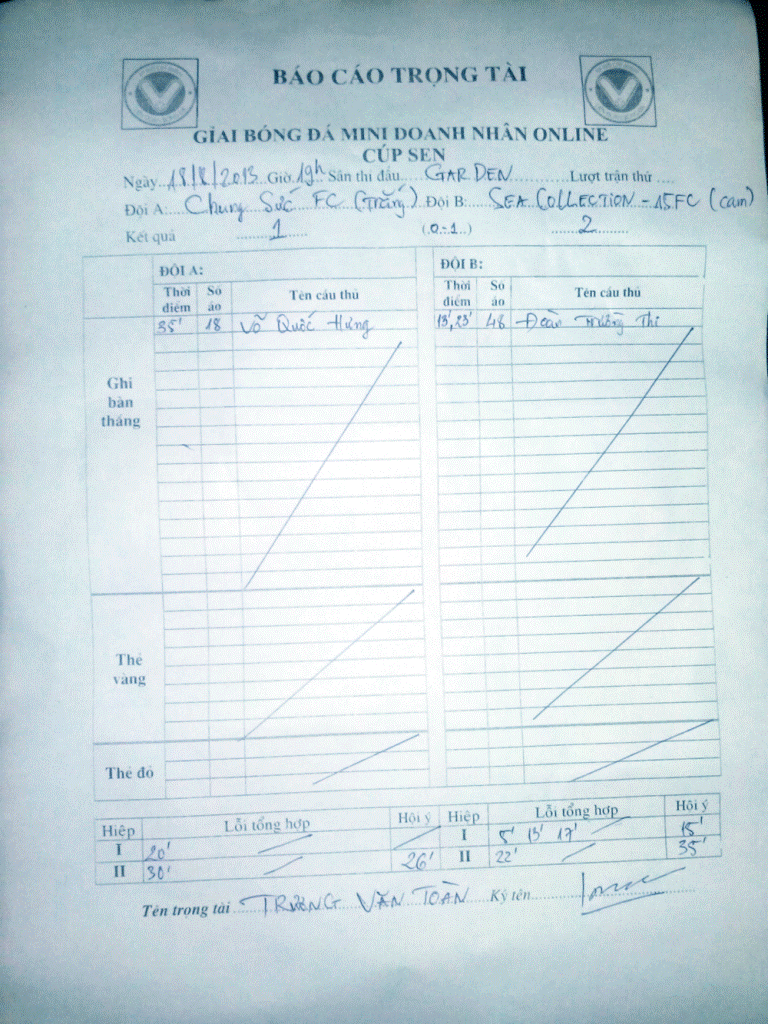 BÁO CÁO TRỌNG TÀI
GIẢI BÓNG ĐÁ MINI DOANH NHÂN ONLINE
CÚP SEN
Ngày 18/8/2013 Giờ 19h Sân thi đấu GARDEN Lượt trận thứ
Đội A: Chung Sức FC (Trắng) Đội B: SEA COLLECTION - 15FC (cam)
Kết quả 1 (0-1) 2
ĐỘI A: ĐỘI B:
Thời điểm Số áo Tên cầu thủ Thời điểm Số áo Tên cầu thủ
35' 18 Võ Quốc Hưng 13', 23' 48 Đoàn Trường Thi
Ghi bàn thắng
Thẻ vàng
Thẻ đỏ
Hiệp Lỗi tổng hợp Hội ý Hiệp Lỗi tổng hợp Hội ý
I 20' I 5' 13' 17' 15'
II 30' 26' II 22' 35'
Tên trọng tài TRƯƠNG VĂN TOÀN Ký tên